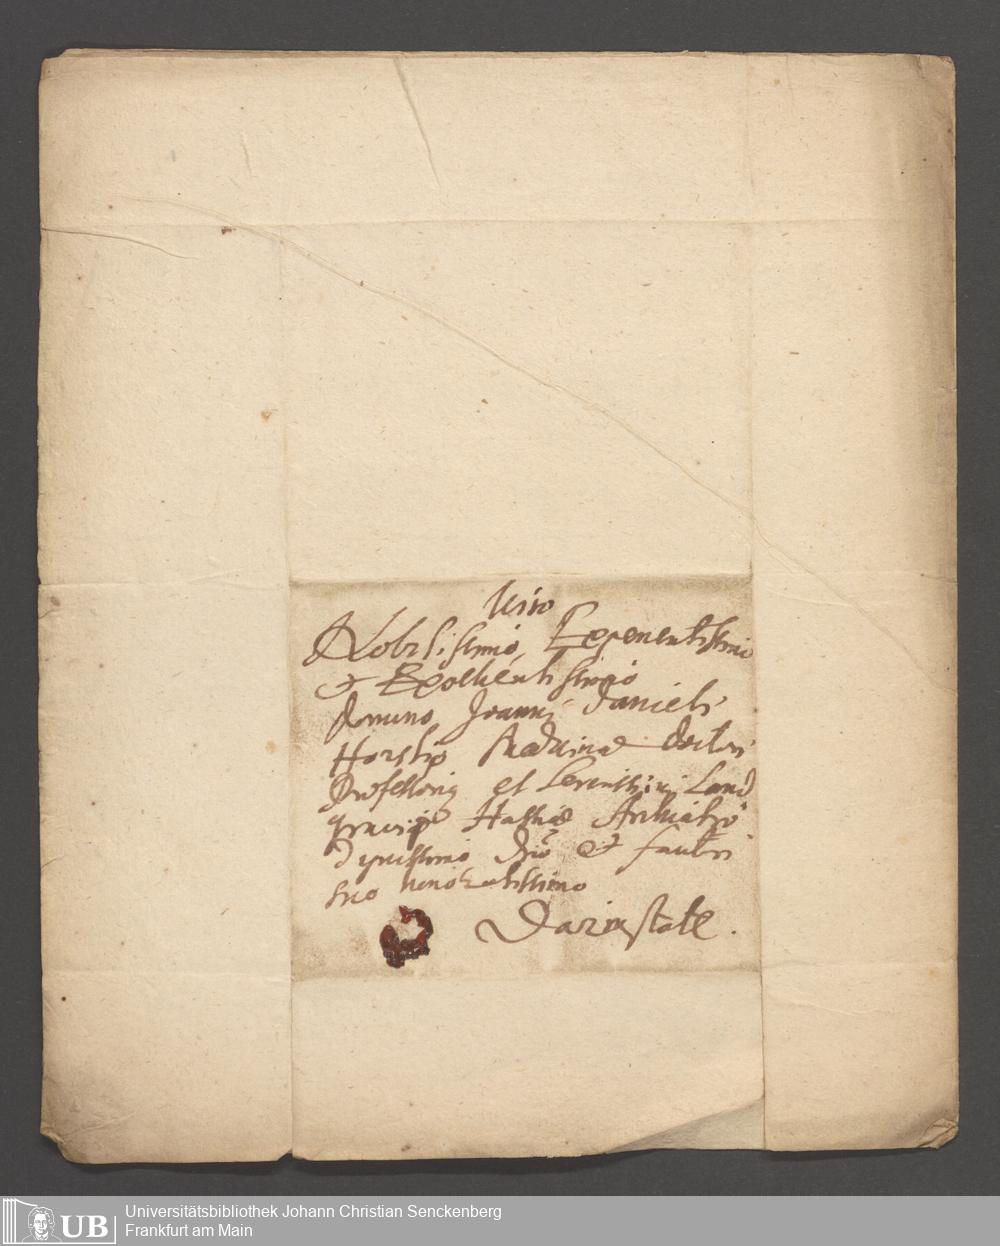 Viro
Nobilissimo, Experientissimo
et Excellentissimo
Domino Joanni Danieli
Horstio Medicinae Doctori
Professori et Serenissimi Land
gravii Hassiae Archiatro
dignissimo dno et fautori
suo honoratissimo
Darmstate.
UB
Universitätsbibliothek Johann Christian Senckenberg
Frankfurt am Main